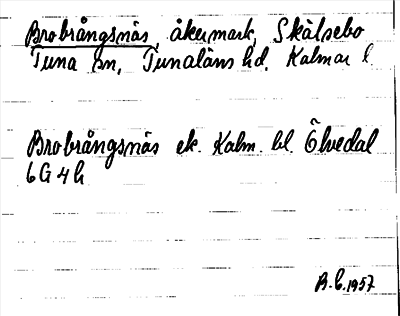 Brobrångsnäs, åkermark, Skälsebo
Tuna sn, Tunaläns hd. Kalmar l
Brobrångsnäs ek. Kalm. bl. Ölvedal
6G4h
B.C.1957